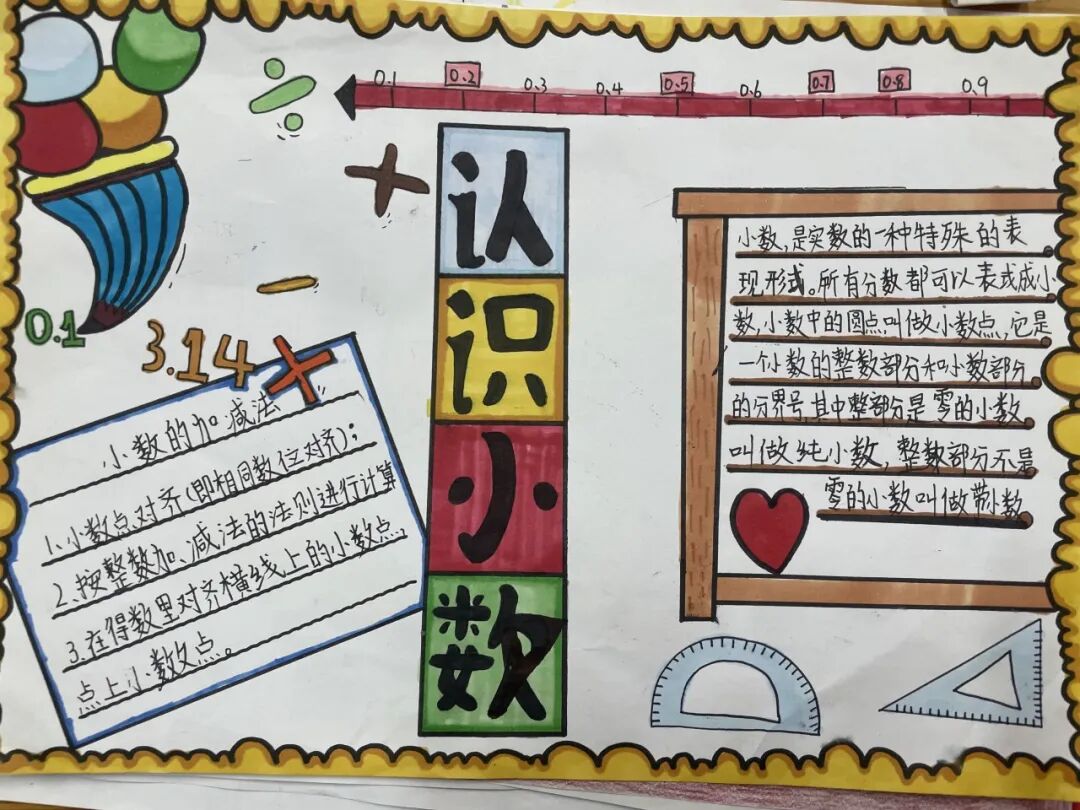 0.1 0.2 0.3 0.4 0.5 0.6 0.7 0.8 0.9
认
识
小
数
0.1
3.14
小数的加减法
1、小数点对齐(即相同数位对齐);
2、按整数加、减法的法则进行计算
3、在得数里对齐横线上的小数点,
点上小数点。
小数,是实数的一种特殊的表
现形式。所有分数都可以表示成小
数,小数中的圆点叫做小数点,它是
一个小数的整数部分和小数部分
的分界号,其中整部分是零的小数
叫做纯小数,整数部分不是
零的小数叫做带小数